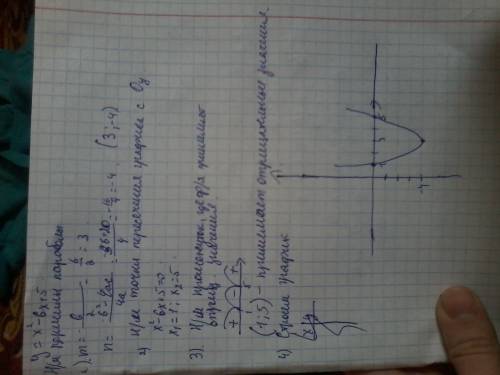 y = x² - 6x + 5
Н/м вершины параболы
1). m = - b/2 = - 6/2 = 3
n = - b² - 4ac / 4a = - 36-20 / 4 = - 16/4 = -4. (3; -4)
2) н/м точки пересечения графика с Oy
x² - 6x + 5 = 0
x₁ = 1; x₂ = 5.
3). Н/м промежуток, где ф/я принимает
отриц значения
+ - +
1 5
(1; 5) - принимает отрицательные значения.
4) Строим график
x
y
1 3 5
-4